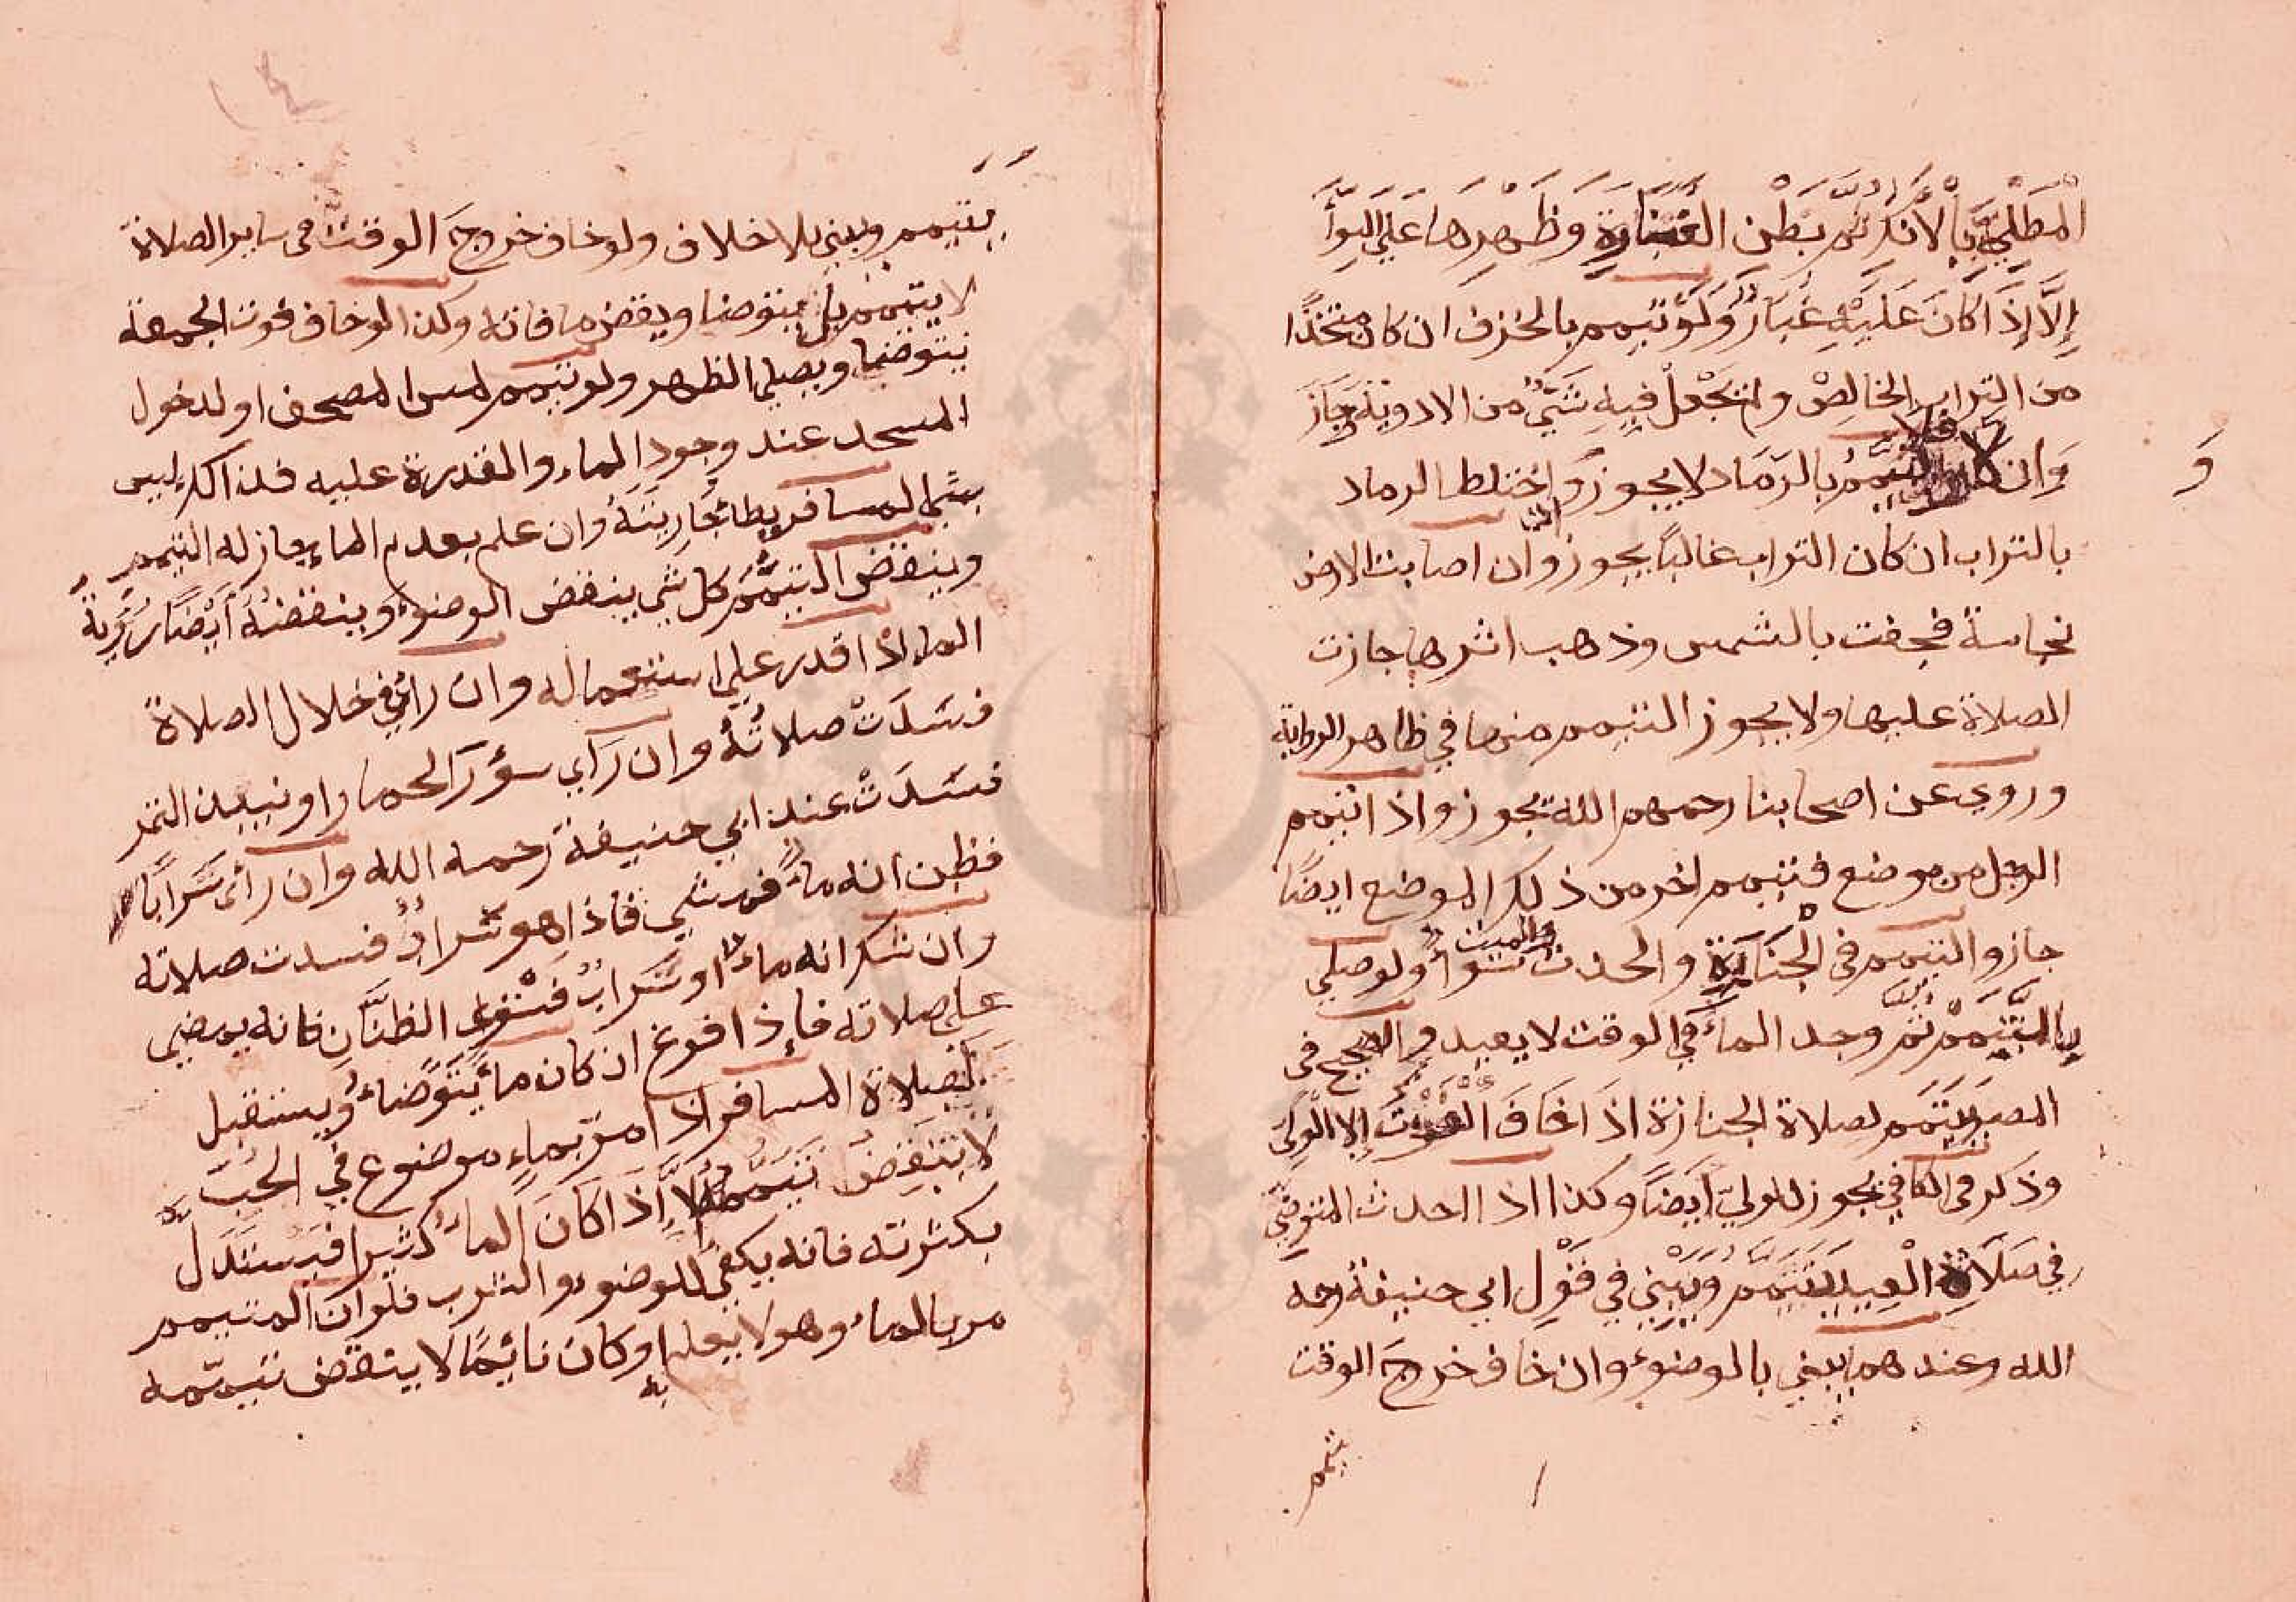 المطلي بالآنك ثم ببطن الغضارة وظهرها على السواء
إلا إذا كان عليه غبار ولو تيمم بالخزف ان كان متخذا
من التراب الخالص ولم يجعل فيه شيء من الادوية جاز
وان كان فلا التيمم بالرماد لا يجوز وإن اختلط الرماد
بالتراب ان كان التراب غالبا يجوز وان اصابت الارض
نجاسة فجفت بالشمس وذهب اثرها جازت
الصلاة عليها ولا يجوز التيمم منها في ظاهر الرواية
وروي عن اصحابنا رحمهم الله يجوز واذا تيمم
الرجل من موضع فتيمم اخر من ذلك الموضع ايضا
جاز والتيمم في الجنابة والحدث والميت سواء ولو صلى
بالتيمم ثم وجد الماء في الوقت لا يعيد والصحيح في
المصر يتيمم لصلاة الجنازة اذا خاف الفوت إلا الولي
وذكر في الكافي يجوز للولي أيضا وكذا اذا احدث المتوضي
في صلاة العيد يتيمم ويبني في قول ابي حنيفة رحمه
الله وعندهما يبني بالوضوء وان خاف خروج الوقت
يتيمم
يتيمم ويبني بلا خلاف ولو خاف خروج الوقت في ساير الصلاة
لا يتيمم بل يتوضا ويقضي ما فاته وكذا لو خاف فوت الجمعة
يتوضا ويصلي الظهر ولو تيمم لمس المصحف او لدخول
المسجد عند وجود الماء والقدرة عليه فذاك ليس
بشي المسافر يطأ جاريته وان علم بعدم الماء جاز له التيمم
وينقض التيمم كل شي ينقض الوضوء وينقضه أيضا رؤية
الماء اذا قدر على استعماله وان راى في خلال الصلاة
فسدت صلاته وان رآي سؤر الحمار او نبيذ التمر
فسدت عند ابي حنيفة رحمه الله وان رأى سرابا
فظن انه ماء فمشي فاذا هو سراب فسدت صلاته
وان شك انه ماء او سراب فاستوى الظنان فانه يمضي
على صلاته فإذا فرغ ان كان ماء يتوضاء ويستقبل
الصلاة المسافر اذا مر بماء موضوع في الحب
لا ينتقض تيممه إلا إذا كان الماء كثيرا فيستدل
بكثرته فانه يكفي للوضوء والشرب فلو ان المتيمم
مر بالماء وهو لا يعلم به او كان نائما لا ينتقض تيممه